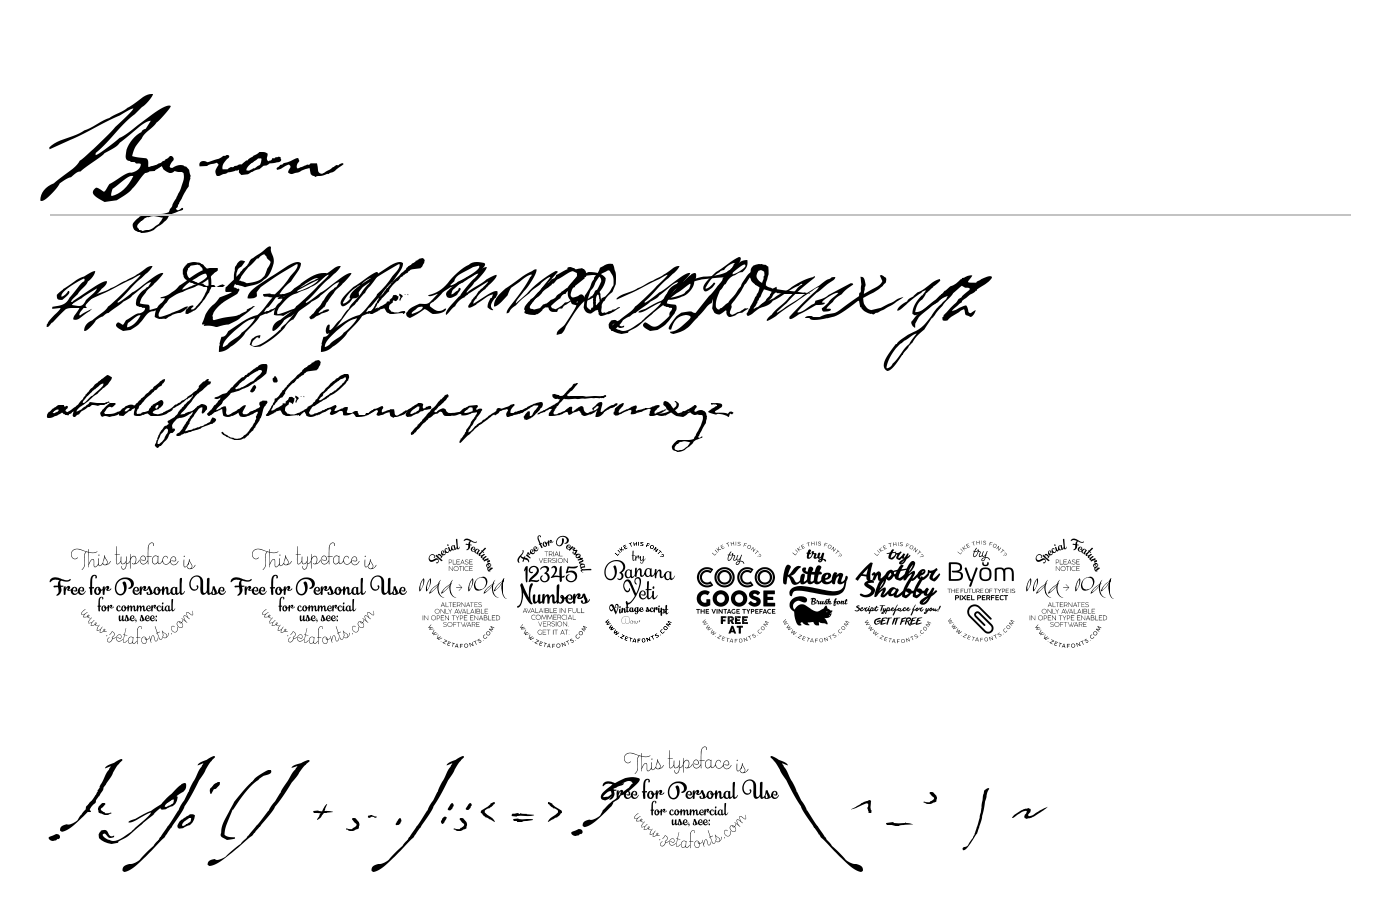 Byron
ABCDEFGHIJKLMNOPQRSTUVWXYZ
abcdefghijklmnopqrstuvwxyz
This typeface is
Free for Personal Use
for commercial
use, see:
www.zetafonts.com
This typeface is
Free for Personal Use
for commercial
use, see:
www.zetafonts.com
Special Features
PLEASE
NOTICE
ALTERNATES
ONLY AVALAIBLE
IN OPEN TYPE ENABLED
SOFTWARE
WWW.ZETAFONTS.COM
Free for Personal
TRIAL
VERSION
12345
Numbers
AVALAIBLE IN FULL
COMMERCIAL
VERSION.
GET IT AT
WWW.ZETAFONTS.COM
LIKE THIS FONT?
try
Banana
Yeti
Vintage script
WWW.ZETAFONTS.COM
LIKE THIS FONT?
try
COCO
GOOSE
THE VINTAGE TYPEFACE
FREE
AT
WWW.ZETAFONTS.COM
LIKE THIS FONT?
try
Kitten
Brush font
WWW.ZETAFONTS.COM
LIKE THIS FONT?
try
Another
Shabby
Script Typeface for you!
GET IT FREE
WWW.ZETAFONTS.COM
LIKE THIS FONT?
try
Byom
THE FUTURE OF TYPE IS
PIXEL PERFECT
WWW.ZETAFONTS.COM
Special Features
PLEASE
NOTICE
ALTERNATES
ONLY AVALAIBLE
IN OPEN TYPE ENABLED
SOFTWARE
WWW.ZETAFONTS.COM
+ , - . / : ; < = > ?
This typeface is
Free for Personal Use
for commercial
use, see:
www.zetafonts.com
\ ^ _ ’ | ~